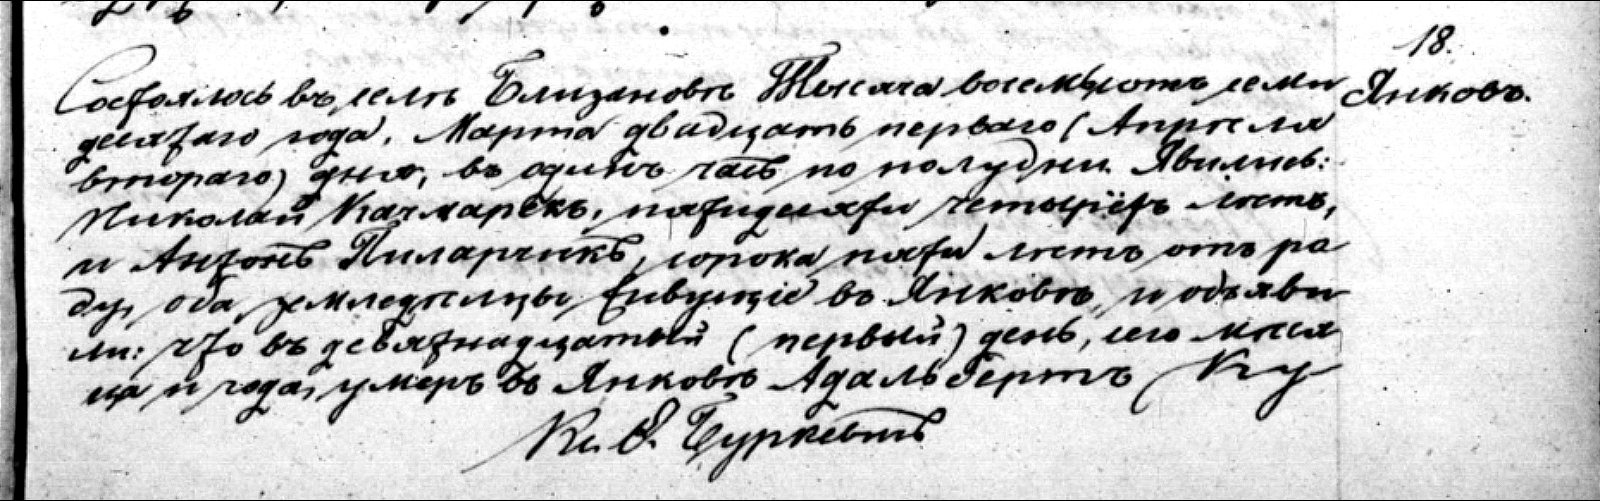 18.
Янковъ.
Состоялось въ селѣ Близановѣ Тысяча восемьсотъ семи
десятаго года, Марта двадцать перваго (Апрѣля
втораго) дня, въ одинъ часъ по полудни. Явились:
Николай Качмарекъ, пятидесяти четырёхъ лѣтъ,
и Антонъ Пиларчикъ, сорока пяти лѣтъ отъ ро
ду, оба земледѣльцы живущіе въ Янковѣ, и объяви
ли: что въ девятнадцатый (первый) день, сего мѣся
ца и года, умеръ въ Янковѣ Адальбертъ Ку
Кс. О. Буркевтъ